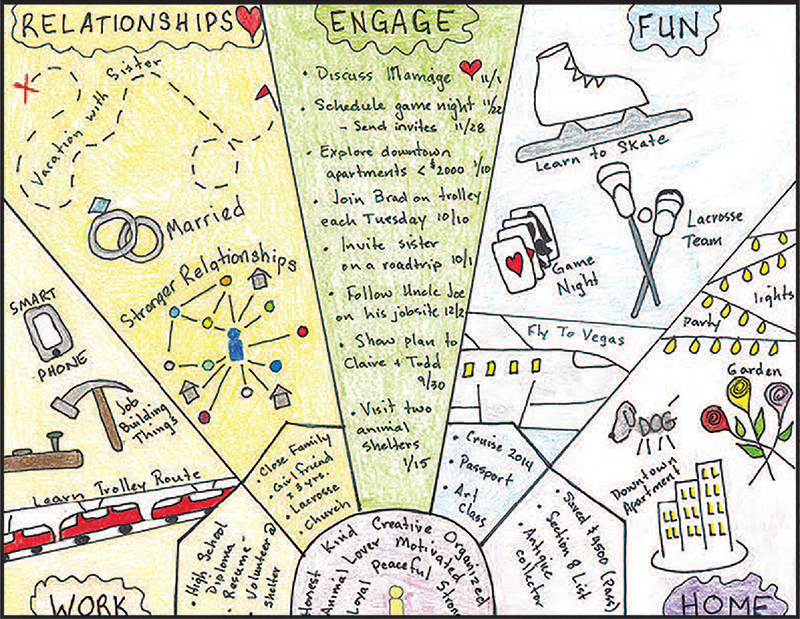 RELATIONSHIPS
Vacation with Sister
Married
Stronger Relationships
ENGAGE
• Discuss Marriage 11/1
• Schedule game night 11/22
- Send invites 11/28
• Explore downtown
apartments < $2000 1/10
• Join Brad on trolley
each Tuesday 10/10
• Invite sister
on a roadtrip 10/1
• Follow Uncle Joe
on his jobsite 12/2
• Show plan to
Claire + Todd
9/30
• Visit two
animal
shelters
1/15
FUN
Learn to Skate
Lacrosse
Team
Game
Night
Fly To Vegas
SMART
PHONE
Job
Building
Things
Learn Trolley Route
WORK
party
lights
Garden
DOG
Downtown
Apartment
HOME
• Close Family
• Girlfriend
x 3 yrs.
• Lacrosse
• Church
• High School
Diploma
• Resume -
• Volunteer @
shelter
• Cruise 2014
• Passport
• Art
Class
• Saved $4500 (Pass)
• Section 8 List
• Antique
collector
Honest Kind Creative Organized
Animal Lover Motivated
Loyal Peaceful Strong